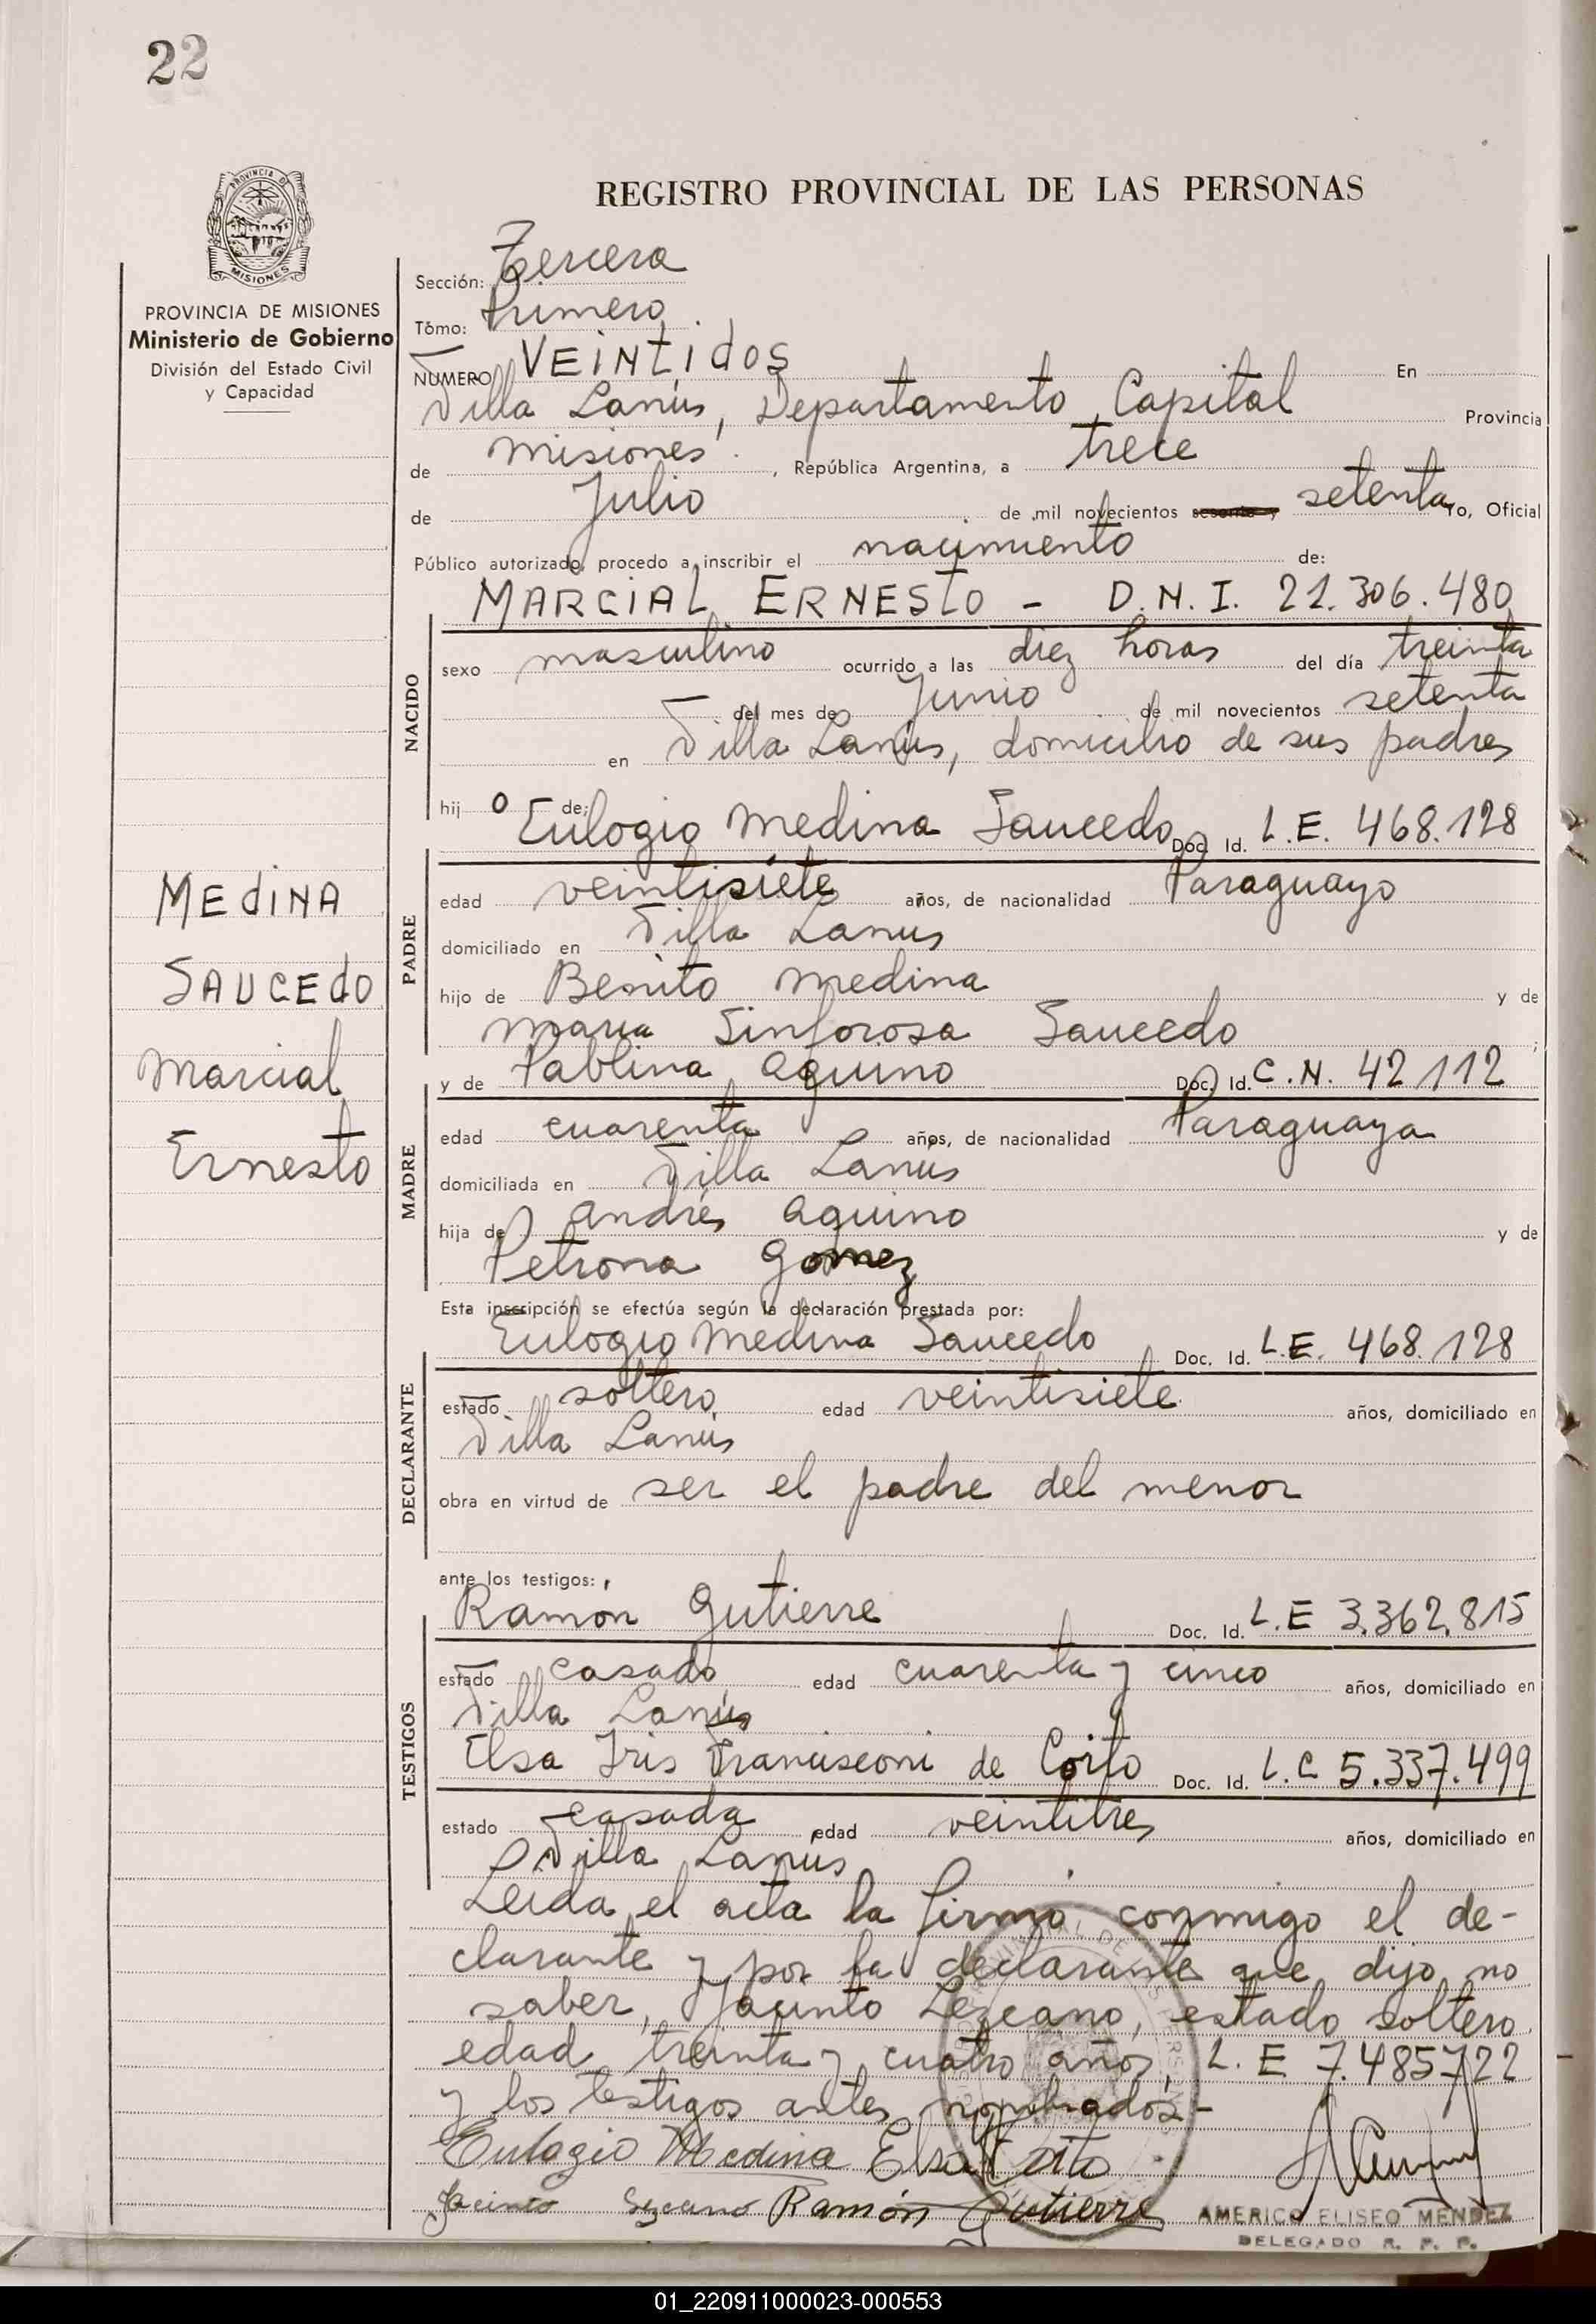 22
PROVINCIA DE
MISIONES
PROVINCIA DE MISIONES
Ministerio de Gobierno
División del Estado Civil
y Capacidad
MEDINA
SAUCEDO
Marcial
Ernesto
REGISTRO PROVINCIAL DE LAS PERSONAS
Sección: Tercera
Tómo: Primero
NUMERO VEINTIdOS En
Villa Lanús, Departamento Capital Provincia
de Misiones, República Argentina, a trece
de Julio de mil novecientos setenta Yo, Oficial
Público autorizado, procedo a inscribir el nacimiento de:
MARCIAL ERNESTO - D.N.I. 21.306.480
NACIDO
sexo masculino ocurrido a las diez horas del día treinta
del mes de Junio de mil novecientos setenta
en Villa Lanús, domicilio de sus padres
hij o de: Eulogio Medina Saucedo Doc. Id. L.E. 468.128
PADRE
edad veintisiete años, de nacionalidad Paraguayo
domiciliado en Villa Lanus
hijo de Benito Medina y de
Maria Sinforosa Saucedo
y de Pablina Aquino Doc. Id. C.N. 42112
MADRE
edad cuarenta años, de nacionalidad Paraguaya
domiciliada en Villa Lanus
hija de Andrés Aquino y de
Petrona Gomez
Esta inscripción se efectúa según la declaración prestada por:
Eulogio Medina Saucedo Doc. Id. L.E. 468.128
DECLARANTE
estado soltero edad veintisiete años, domiciliado en
Villa Lanús
obra en virtud de ser el padre del menor
ante los testigos:
Ramón Gutierre Doc. Id. L.E 3.362.815
TESTIGOS
estado casado edad cuarenta y cinco años, domiciliado en
Villa Lanús
Elsa Iris de Doc. Id. L.C 5.337.499
estado casada edad veintitres años, domiciliado en
Villa Lanús
Leida el acta la firmó conmigo el de-
clarante y por la declarante que dijo no
saber, Jacinto Lezcano, estado soltero
edad treinta y cuatro años, L. E 7.485722
y los testigos antes nombrados.-
Eulogio Medina Elsa
Jacinto Lezcano Ramón Gutierre AMERICO ELISEO MENDEZ
DELEGADO R. P. P.
01_220911000023-000553